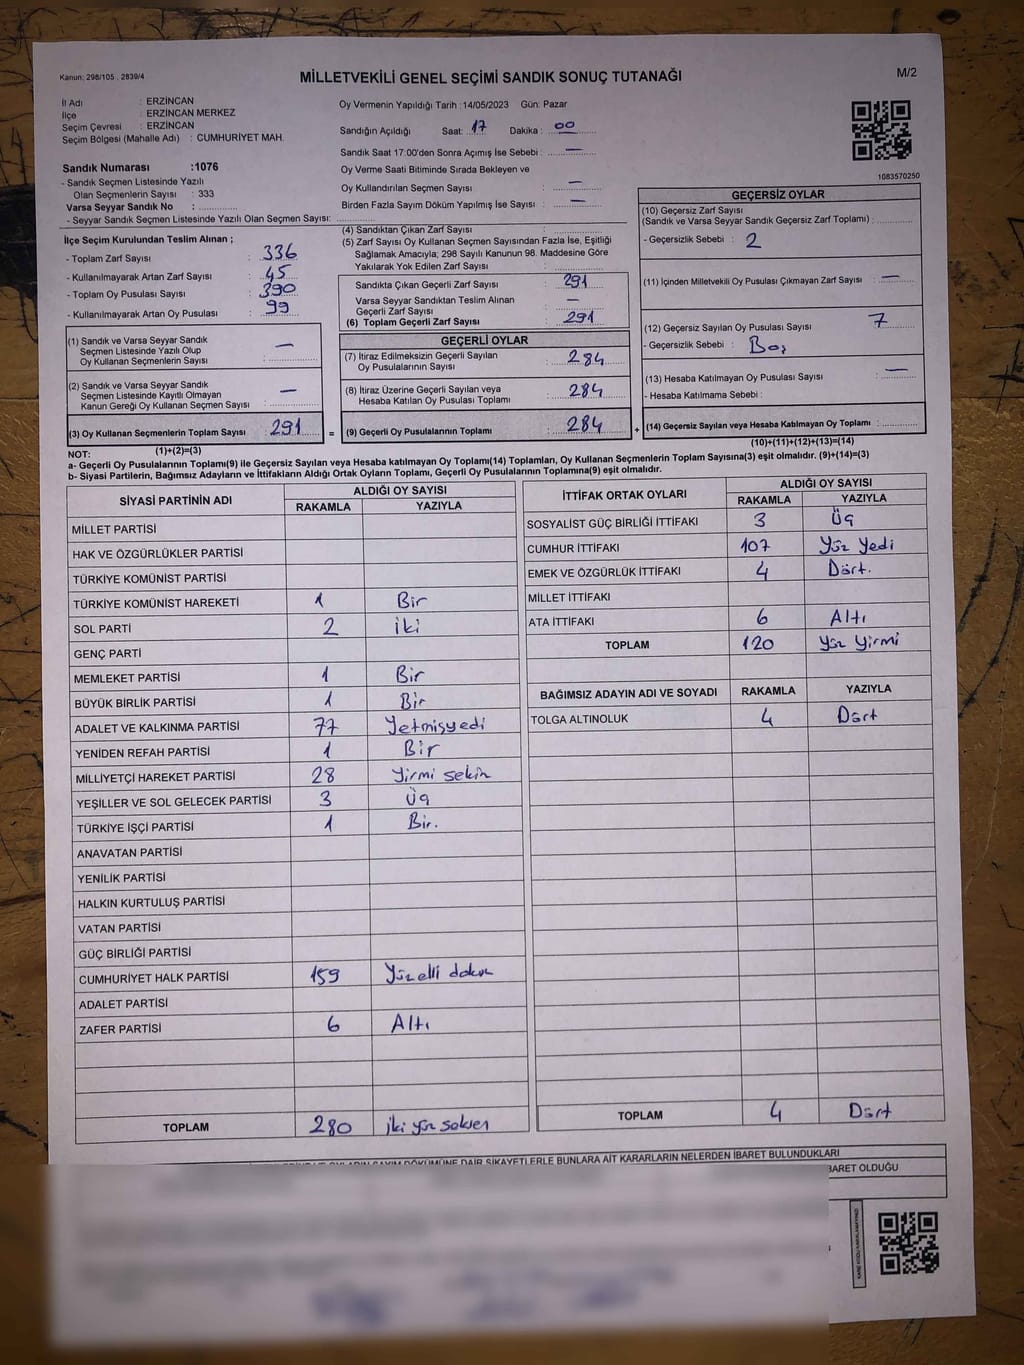 Kanun: 298/105 . 2839/4
MİLLETVEKİLİ GENEL SEÇİMİ SANDIK SONUÇ TUTANAĞI
M/2
İl Adı : ERZİNCAN
İlçe : ERZİNCAN MERKEZ
Seçim Çevresi : ERZİNCAN
Seçim Bölgesi (Mahalle Adı) : CUMHURİYET MAH.
Sandık Numarası :1076
- Sandık Seçmen Listesinde Yazılı
Olan Seçmenlerin Sayısı : 333
Varsa Seyyar Sandık No :
- Seyyar Sandık Seçmen Listesinde Yazılı Olan Seçmen Sayısı:
Oy Vermenin Yapıldığı Tarih :14/05/2023 Gün: Pazar
Sandığın Açıldığı Saat: 17 Dakika : 00
Sandık Saat 17:00'den Sonra Açımış İse Sebebi : —
Oy Verme Saati Bitiminde Sırada Bekleyen ve
Oy Kullandırılan Seçmen Sayısı : —
Birden Fazla Sayım Döküm Yapılmış İse Sayısı : —
1083570250
İlçe Seçim Kurulundan Teslim Alınan ;
- Toplam Zarf Sayısı : 336
- Kullanılmayarak Artan Zarf Sayısı : 45
- Toplam Oy Pusulası Sayısı : 390
- Kullanılmayarak Artan Oy Pusulası : 99
(1) Sandık ve Varsa Seyyar Sandık
Seçmen Listesinde Yazılı Olup
Oy Kullanan Seçmenlerin Sayısı : —
(2) Sandık ve Varsa Seyyar Sandık
Seçmen Listesinde Kayıtlı Olmayan
Kanun Gereği Oy Kullanan Seçmen Sayısı : —
(3) Oy Kullanan Seçmenlerin Toplam Sayısı : 291 =
(1)+(2)=(3)
(4) Sandıktan Çıkan Zarf Sayısı :
(5) Zarf Sayısı Oy Kullanan Seçmen Sayısından Fazla İse, Eşitliği
Sağlamak Amacıyla; 298 Sayılı Kanunun 98. Maddesine Göre
Yakılarak Yok Edilen Zarf Sayısı :
Sandıkta Çıkan Geçerli Zarf Sayısı : 291
Varsa Seyyar Sandıktan Teslim Alınan
Geçerli Zarf Sayısı : —
(6) Toplam Geçerli Zarf Sayısı : 291
GEÇERLİ OYLAR
(7) İtiraz Edilmeksizin Geçerli Sayılan
Oy Pusulalarının Sayısı : 284
(8) İtiraz Üzerine Geçerli Sayılan veya
Hesaba Katılan Oy Pusulası Toplamı : 284
(9) Geçerli Oy Pusulalarının Toplamı : 284 +
GEÇERSİZ OYLAR
(10) Geçersiz Zarf Sayısı
(Sandık ve Varsa Seyyar Sandık Geçersiz Zarf Toplamı) :
- Geçersizlik Sebebi : 2
(11) İçinden Milletvekili Oy Pusulası Çıkmayan Zarf Sayısı : —
(12) Geçersiz Sayılan Oy Pusulası Sayısı : 7
- Geçersizlik Sebebi : Boş
(13) Hesaba Katılmayan Oy Pusulası Sayısı : —
- Hesaba Katılmama Sebebi :
(14) Geçersiz Sayılan veya Hesaba Katılmayan Oy Toplamı :
(10)+(11)+(12)+(13)=(14)
NOT:
a- Geçerli Oy Pusulalarının Toplamı(9) ile Geçersiz Sayılan veya Hesaba katılmayan Oy Toplamı(14) Toplamları, Oy Kullanan Seçmenlerin Toplam Sayısına(3) eşit olmalıdır. (9)+(14)=(3)
b- Siyasi Partilerin, Bağımsız Adayların ve İttifakların Aldığı Ortak Oyların Toplamı, Geçerli Oy Pusulalarının Toplamına(9) eşit olmalıdır.
SİYASİ PARTİNİN ADI ALDIĞI OY SAYISI
RAKAMLA YAZIYLA
MİLLET PARTİSİ
HAK VE ÖZGÜRLÜKLER PARTİSİ
TÜRKİYE KOMÜNİST PARTİSİ
TÜRKİYE KOMÜNİST HAREKETİ 1 Bir
SOL PARTİ 2 iki
GENÇ PARTİ
MEMLEKET PARTİSİ 1 Bir
BÜYÜK BİRLİK PARTİSİ 1 Bir
ADALET VE KALKINMA PARTİSİ 77 Yetmişyedi
YENİDEN REFAH PARTİSİ 1 Bir
MİLLİYETÇİ HAREKET PARTİSİ 28 Yirmi sekin
YEŞİLLER VE SOL GELECEK PARTİSİ 3 Üç
TÜRKİYE İŞÇİ PARTİSİ 1 Bir.
ANAVATAN PARTİSİ
YENİLİK PARTİSİ
HALKIN KURTULUŞ PARTİSİ
VATAN PARTİSİ
GÜÇ BİRLİĞİ PARTİSİ
CUMHURİYET HALK PARTİSİ 159 Yüz elli dokuz
ADALET PARTİSİ
ZAFER PARTİSİ 6 Altı
TOPLAM 280 iki yüz seksen
İTTİFAK ORTAK OYLARI ALDIĞI OY SAYISI
RAKAMLA YAZIYLA
SOSYALİST GÜÇ BİRLİĞİ İTTİFAKI 3 Üç
CUMHUR İTTİFAKI 107 Yüz Yedi
EMEK VE ÖZGÜRLÜK İTTİFAKI 4 Dört.
MİLLET İTTİFAKI
ATA İTTİFAKI 6 Altı
TOPLAM 120 Yüz Yirmi
BAĞIMSIZ ADAYIN ADI VE SOYADI RAKAMLA YAZIYLA
TOLGA ALTINOLUK 4 Dört
TOPLAM 4 Dört
DÖKÜMÜNE DAİR ŞİKAYETLERLE BUNLARA AİT KARARLARIN NELERDEN İBARET BULUNDUKLARI
BARET OLDUĞU